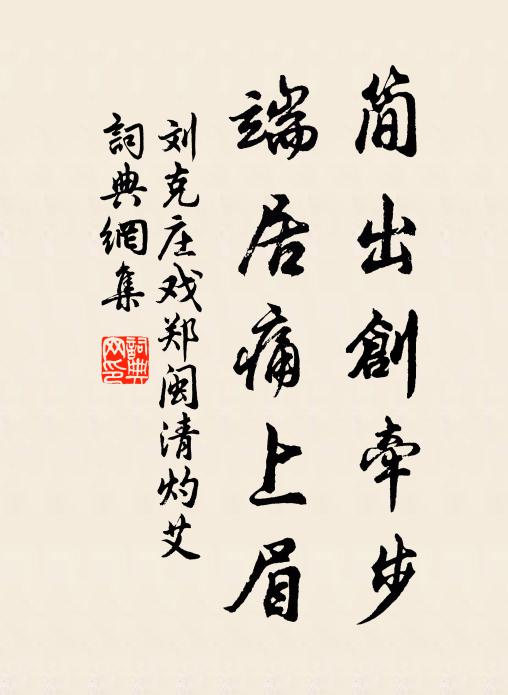 简出創牽步
端居痛上眉
刘克庄戏郑闽清灼艾
詞典網集
詞典網印